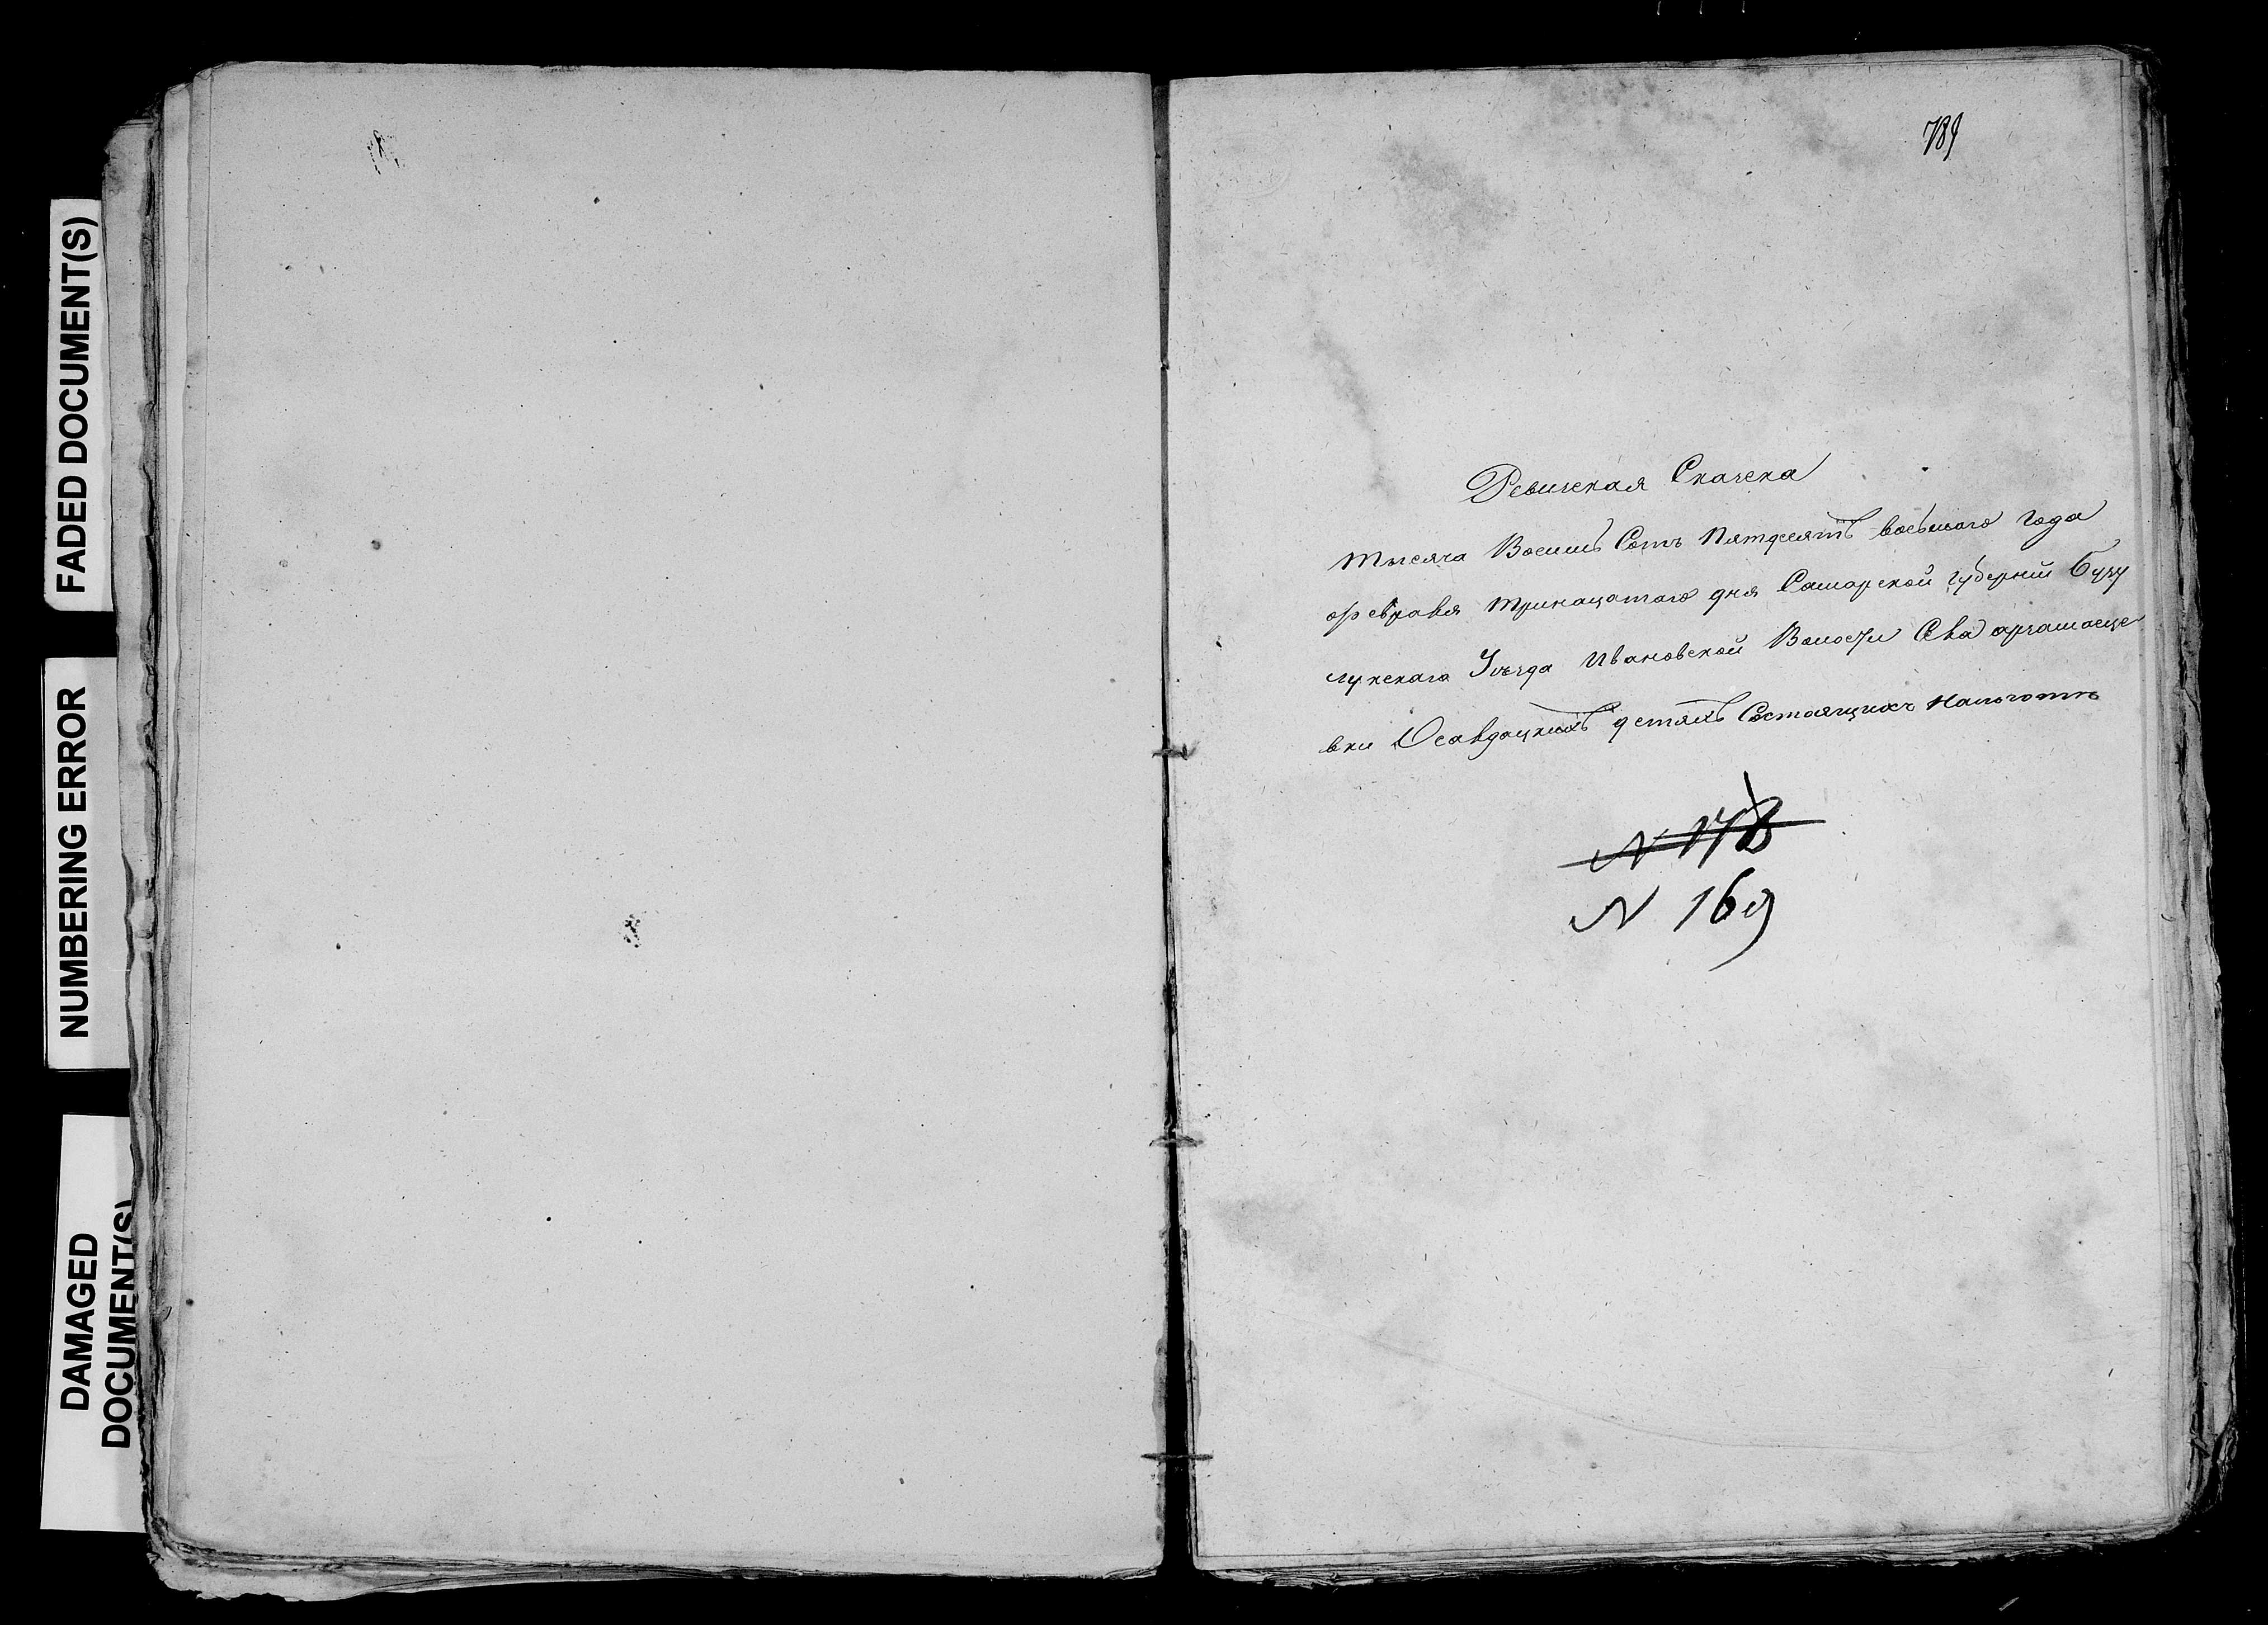 FADED DOCUMENT(S)
NUMBERING ERROR
DAMAGED
DOCUMENT(S)
789
Ревиская Скаска
тысяча Восемь Сотъ Пятдесятъ восьмого Года
февраля тринацатаго дня Самарской губерніи Бузу
лукскаго Уѣзда Ивановской Волости Села арзамасце
вки О салдацкихъ детяхъ Состоящихъ Нальготѣ
N 178
N 169